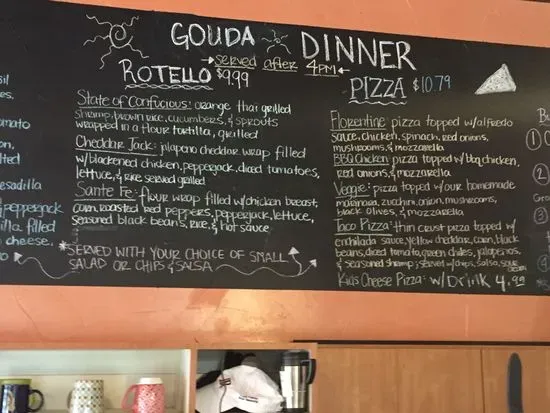 GOUDA DINNER
→served after 4PM←
ROTELLO $9.99
State of Confucious: orange thai grilled
shrimp, brown rice, cucumbers, & sprouts
wrapped in a flour tortilla, grilled
Cheddar Jack: jalapeno cheddar wrap filled
w/blackened chicken, pepperjack, diced tomatoes,
lettuce, & rice served grilled
Sante Fe: flour wrap filled w/chicken breast,
corn, roasted red peppers, pepperjack, lettuce,
seasoned black beans, rice, & hot sauce
*SERVED WITH YOUR CHOICE OF SMALL
SALAD OR CHIPS & SALSA
PIZZA $10.79
Florentine: pizza topped w/alfredo
sauce, chicken, spinach, red onions,
mushrooms, & mozzarella
BBQ Chicken: pizza topped w/bbq chicken,
red onions, & mozzarella
Veggie: pizza topped w/our homemade
marinara, zucchini, onion, mushrooms,
black olives, & mozzarella
Taco Pizza: thin crust pizza topped w/
enchilada sauce, yellow cheddar, corn, black
beans, diced tomato, green chiles, jalapenos,
& seasoned shrimp; served w/chips, salsa, sour cream
Kid's Cheese Pizza: w/DrinK 4.99
pepperjack
cheese,
1
2
3
4